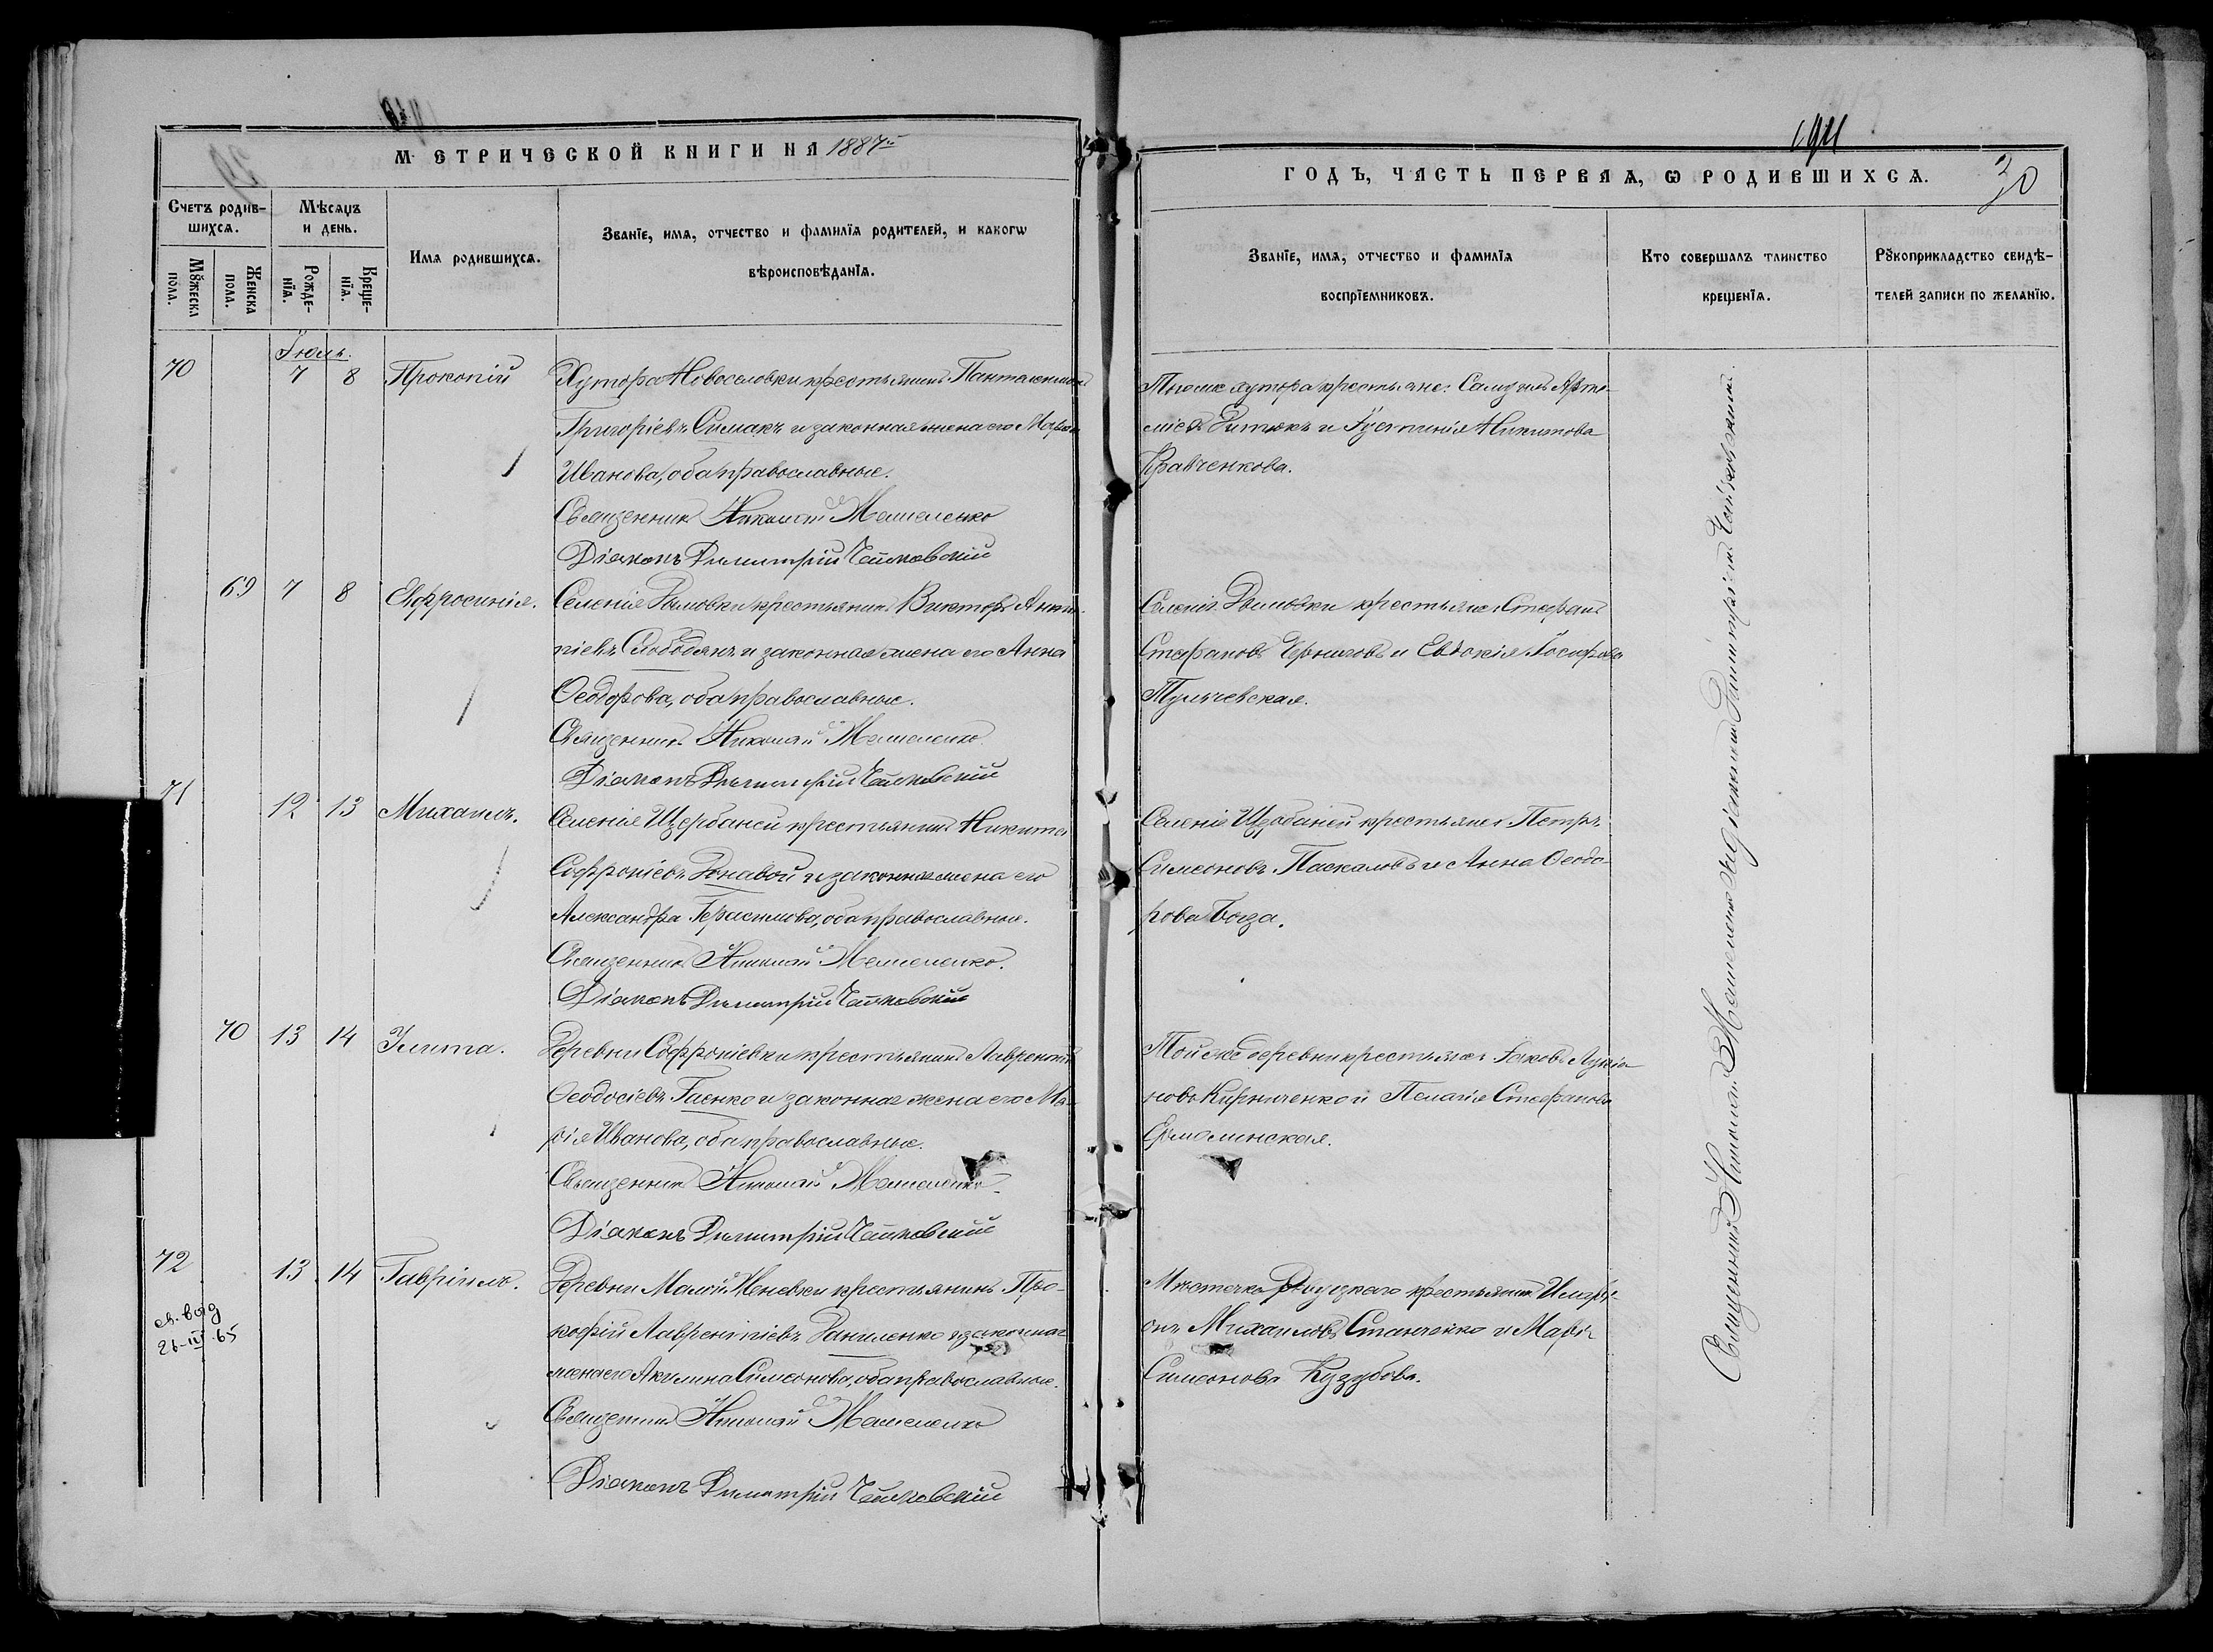 МЕТРИЧЕСКОЙ КНИГИ НА 1887й
Счетъ родив-
шихся.
Мѣсяцъ
и день.
Мужеска
пола.
Женска
пола.
Рожде-
нія.
Креще-
нія.
Имя родившихся.
Званіе, имя, отчество и фамилія родителей, и какогω
вѣроисповѣданія.
ГОДЪ, ЧАСТЬ ПЕРВАЯ, Ѡ РОДИВШИХСЯ.
30
Званіе, имя, отчество и фамилія
воспріемниковъ.
Кто совершалъ таинство
крещенія.
Рꙋкоприкладство свидѣ-
телей записи по желанію.
Іюль.
70 7 8 Прокопій
Хутора Новоселовки крестьянинъ Пантелеимонъ
Григоріевъ Симакъ и законная жена его Марфа
Иванова, оба православные.
Священникъ Николай Мемеленко
Діаконъ Димитрій Чайковскій
Того же хутора крестьяне: Самуилъ Арте-
міевъ Витюкъ и Іустинія Никитова
Кравченкова.
69 7 8 Евфросинія.
Селенія Дымовки крестьянинъ Викторъ Анти-
піевъ Слободянъ и законная жена его Анна
Ѳеодорова, оба православные.
Священникъ Николай Мемеленко
Діаконъ Димитрій Чайковскій
Селенія Дымовки крестьяне: Стефанъ
Стефановъ Черниговъ и Евдокія Іосифова
Тульчевская.
71 12 13 Михаилъ.
Селенія Щербаней крестьянинъ Никита
Софроніевъ Донавой и законная жена его
Александра Герасимова, оба православные.
Священникъ Николай Мемеленко.
Діаконъ Димитрій Чайковскій
Селенія Щербаней крестьяне: Петръ
Симеоновъ Паскаловъ и Анна Ѳеодо-
рова Бога.
70 13 14 Улита.
Деревни Софроніевки крестьянинъ Лаврентій
Ѳеодосіевъ Гаенко и законная жена его Ма-
рія Иванова, оба православные.
Священникъ Николай Мемеленко
Діаконъ Димитрій Чайковскій
Той же деревни крестьяне: Іаковъ Лукіа-
новъ Кирниченко и Пелагія Стефанова
Ермолинская.
72 13 14 Гавріилъ.
св. выд
26-III-65
Деревни Малой Женевки крестьянинъ Про-
кофій Лаврентіевъ Даниленко и законная
жена его Акулина Симеонова, оба православные.
Священникъ Николай Мемеленко
Діаконъ Димитрій Чайковскій
Мѣстечка крестьянинъ Иларі-
онъ Михаиловъ Станченко и Марія
Симеонова Кузубова.
Священникъ Николай Мемеленко съ діакономъ Димитріемъ Чайковскимъ.